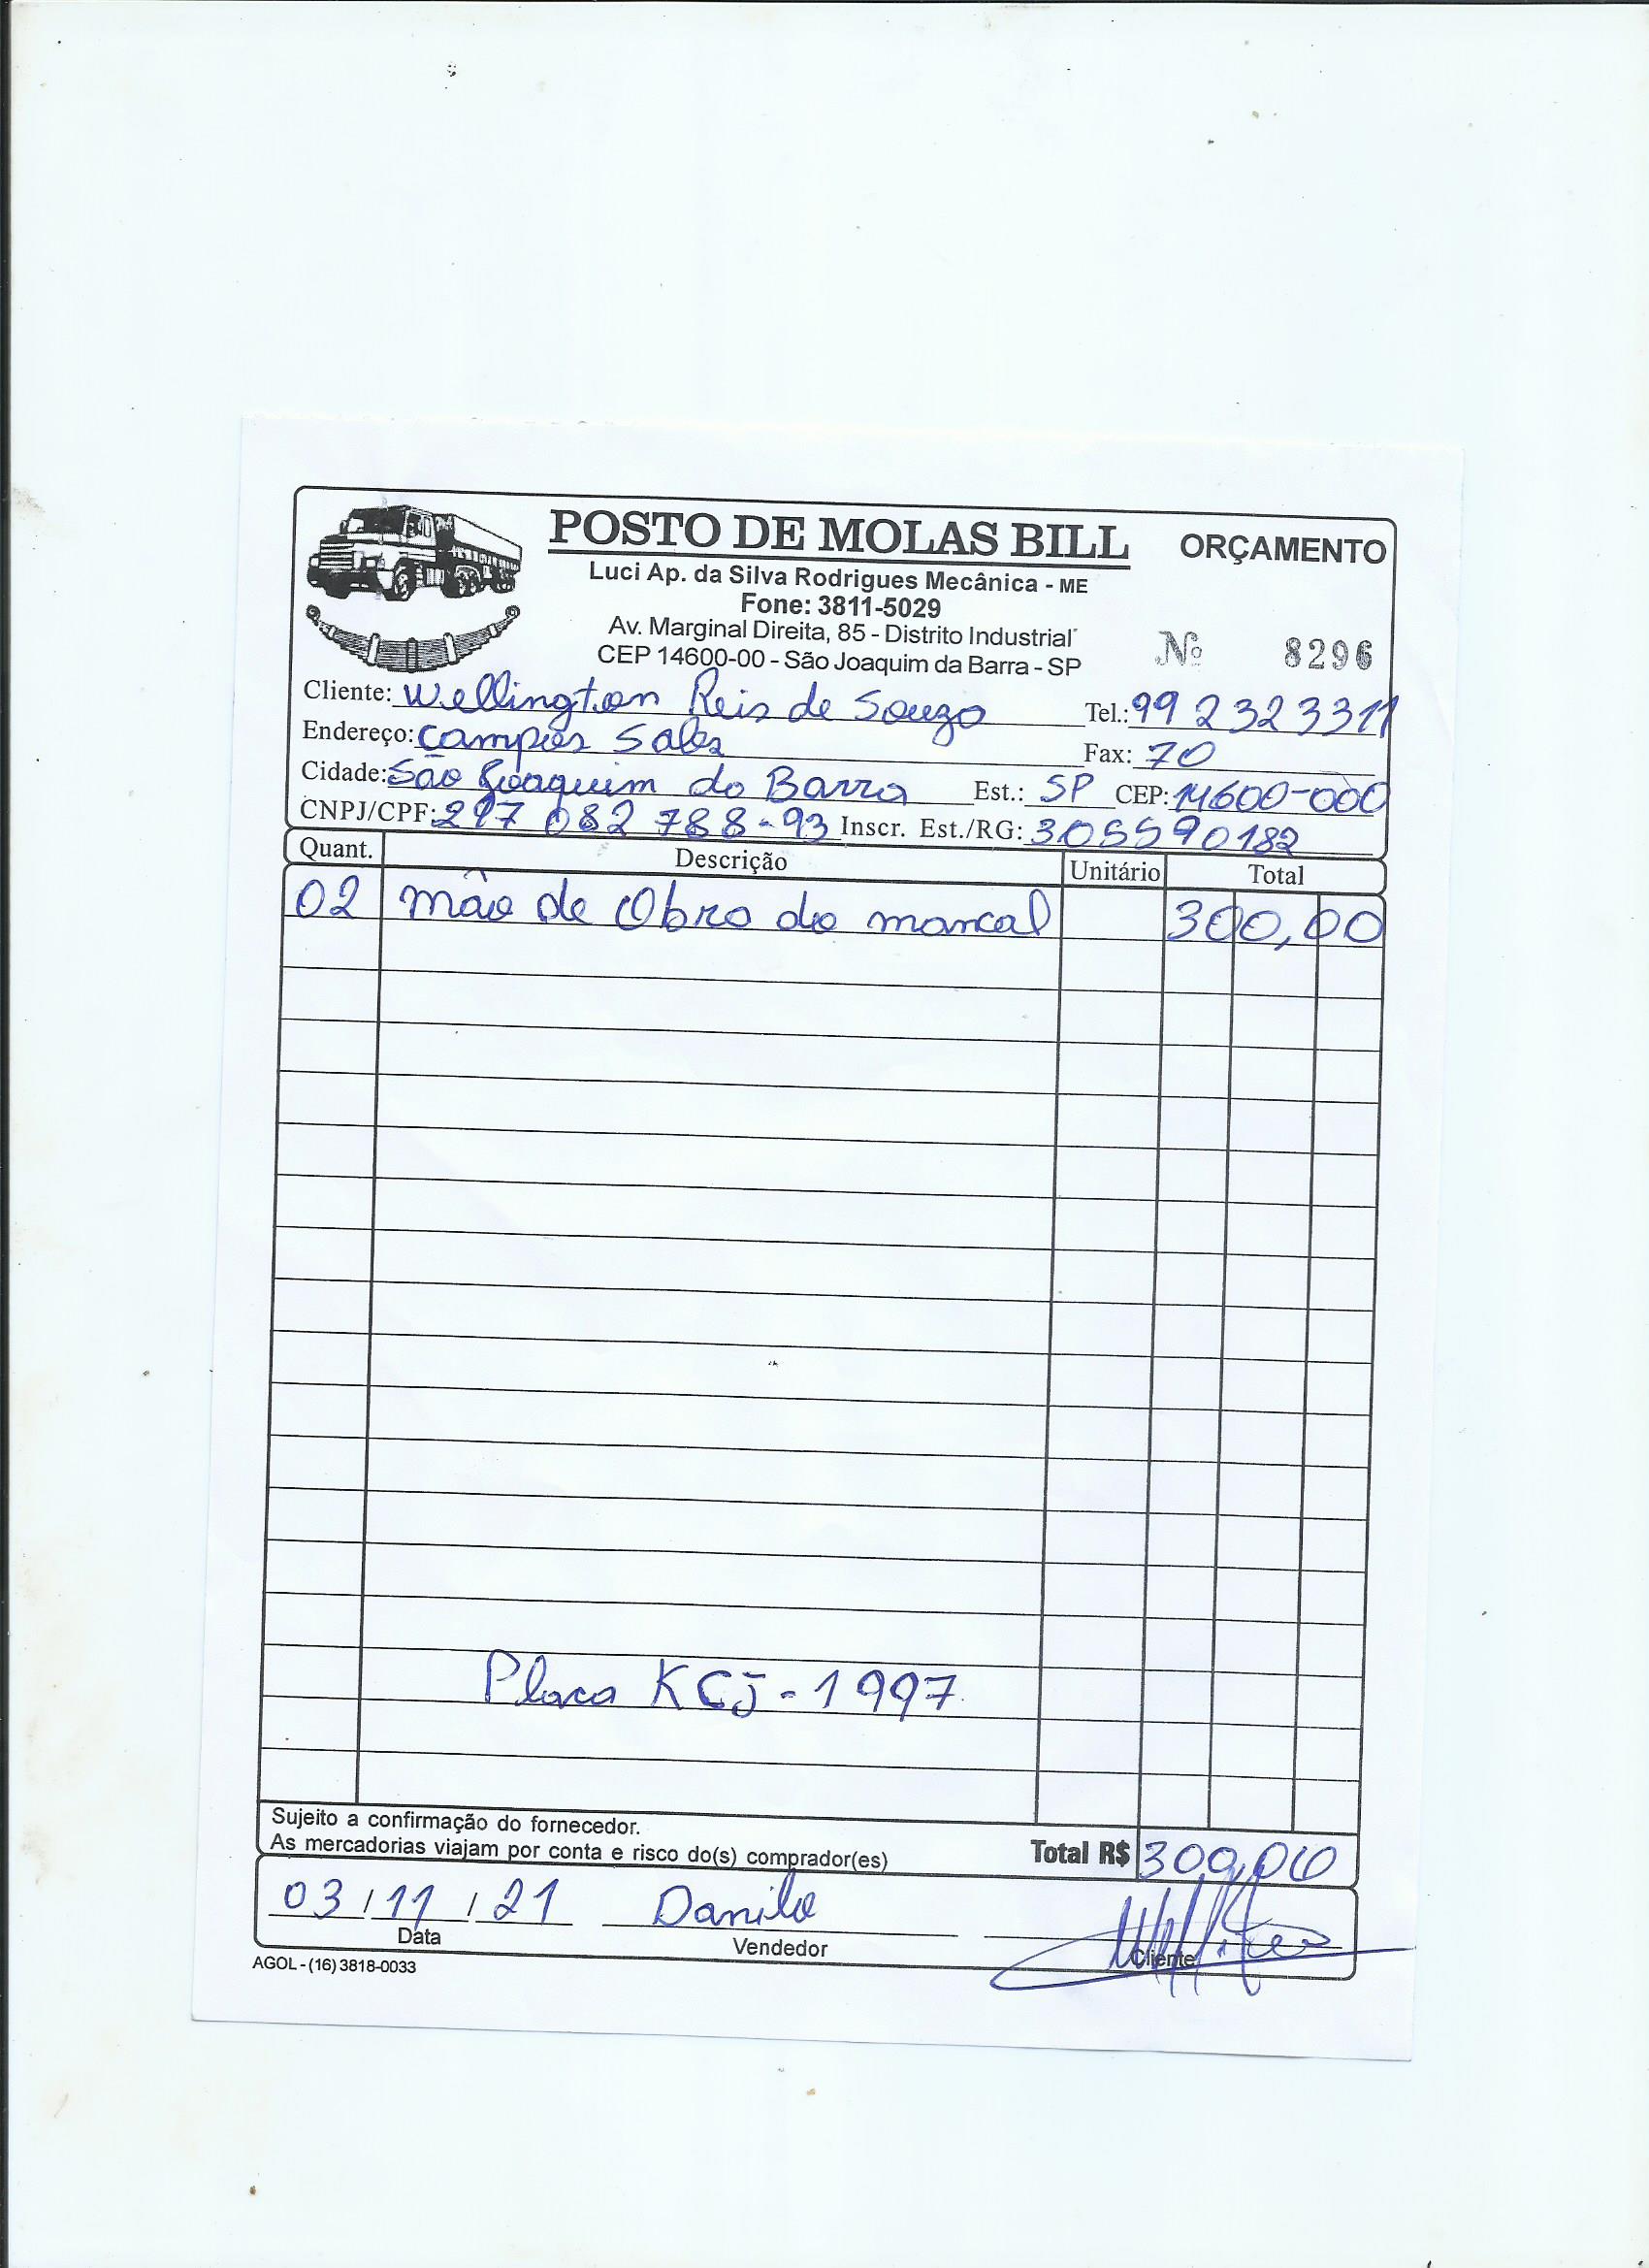 POSTO DE MOLAS BILL ORÇAMENTO
Luci Ap. da Silva Rodrigues Mecânica - ME
Fone: 3811-5029
Av. Marginal Direita, 85 - Distrito Industrial
CEP 14600-00 - São Joaquim da Barra - SP
Nº 8296
Cliente: Wellington Reis de Souza Tel.: 99 2323311
Endereço: Campos Sales Fax: 70
Cidade: São Joaquim da Barra Est.: SP CEP: 14600-000
CNPJ/CPF: 297 082 788-93 Inscr. Est./RG: 305590182
Quant. Descrição Unitário Total
02 mão de Obra do mancal 300,00
Placa KCJ-1997
Sujeito a confirmação do fornecedor.
As mercadorias viajam por conta e risco do(s) comprador(es) Total R$ 300,00
03/11/21 Danilo
Data Vendedor Cliente
AGOL - (16) 3818-0033